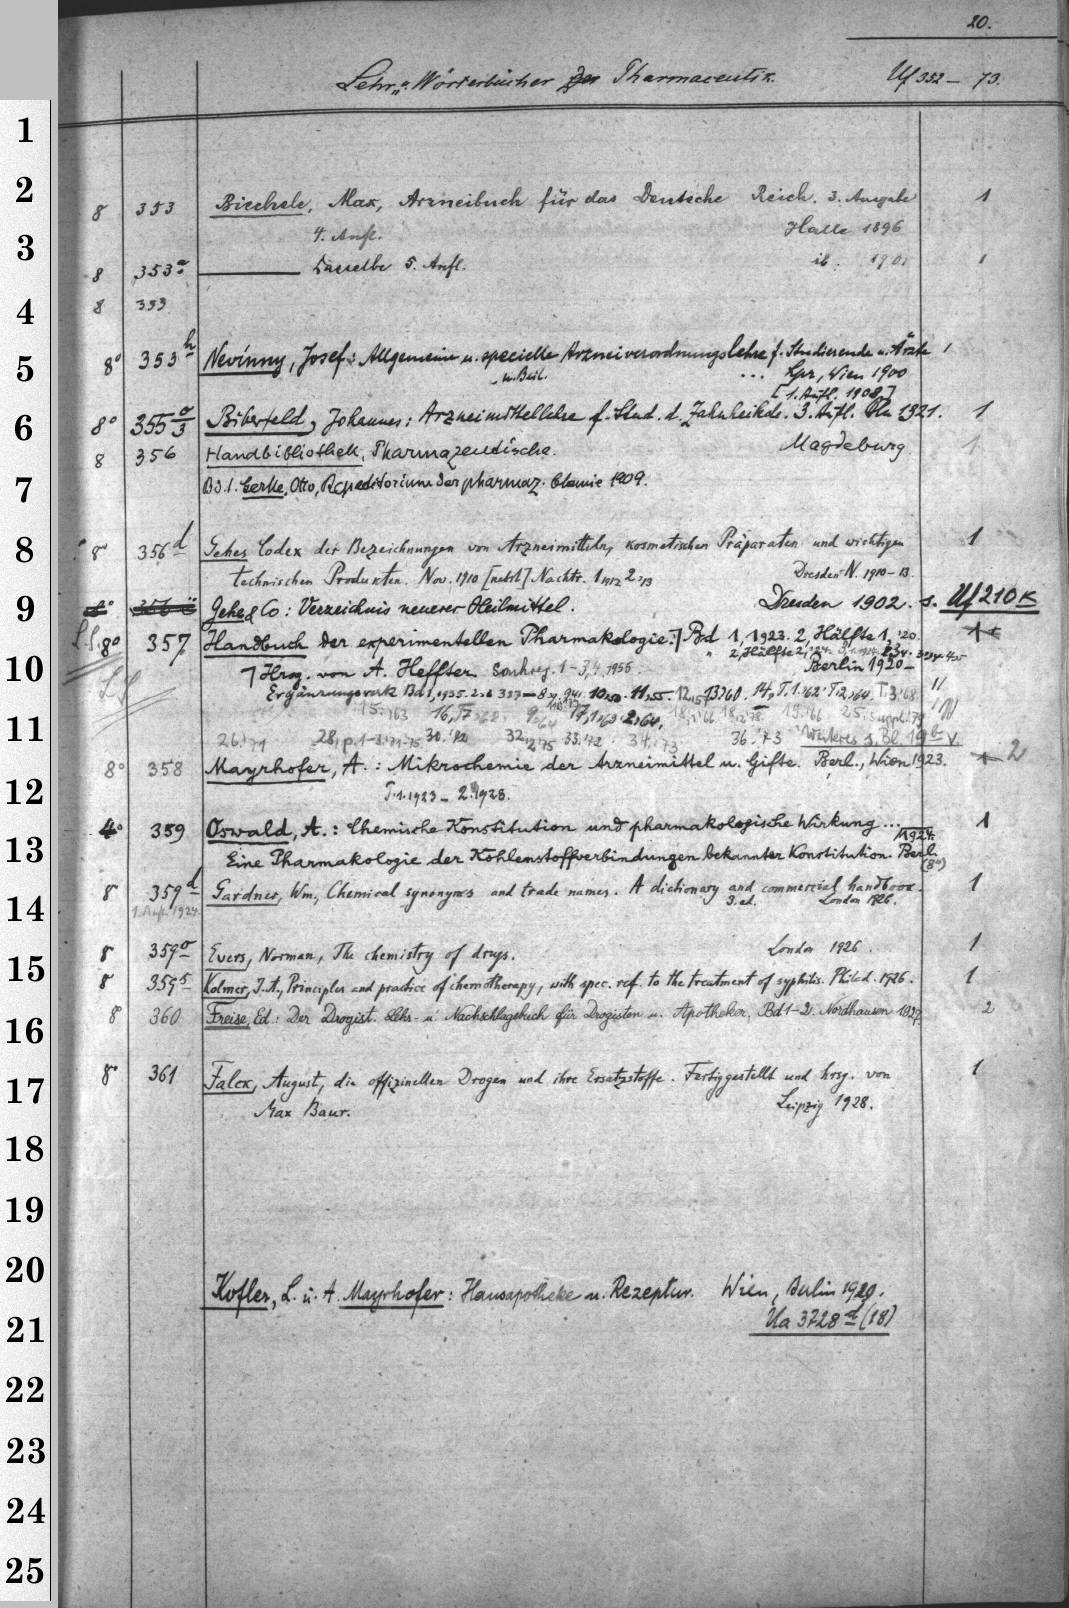 20.
Lehr- u. Wörterbücher der Pharmaceutik. Uf 352 — 73.
1
2
8 353 Biechele, Max, Arzneibuch für das Deutsche Reich. 3. Ausgabe 1
4. Aufl. Halle 1896
3
8 353a Dasselbe 5. Aufl. ib. 1901 1
4
8 353
5
8° 353h Nevinny, Josef: Allgemeine u. specielle Arzneiverordnungslehre f. Studierende u. Ärzte 1
... Lpz, Wien 1900
[1. Aufl. 1908]
6
8° 355 Biberfeld, Johannes: Arzneimittellehre f. Stud. d. Zahnheilkde. 3. Aufl. Bln 1921. 1
8 356 Handbibliothek, Pharmazeutische. Magdeburg 1
7
Bd. 1. Gerke, Otto, Repetitorium der pharmaz. Chemie 1909.
8
8 356d Gehes Codex der Bezeichnungen von Arzneimitteln, kosmetischen Präparaten und wichtigen 1
technischen Produkten. Nov. 1910 [nebst] Nachtr. Dresden-N. 1910-13
9
Gehe & Co: Verzeichnis neuerer Heilmittel. Dresden 1902. s. Uf 210k
8° 357 Handbuch der experimentellen Pharmakologie. Bd 1, 1923. 2, Hälfte 1, '20.
10
Hrsg. von A. Heffter Berlin 1920-
Ergänzungswerk Bd 1, 1935.
11
26.'71 36.'73 Weiteres s. Bl. 19
8° 358 Mayrhofer, A.: Mikrochemie der Arzneimittel u. Gifte. Berl., Wien 1923. 2
12
T. 1. 1923 - 2. 1928.
4° 359 Oswald, A.: Chemische Konstitution und pharmakologische Wirkung ... 1924. 1
13
Eine Pharmakologie der Kohlenstoffverbindungen bekannter Konstitution. Berl.
(8°)
8 359d Gardner, Wm, Chemical synonyms and trade names. A dictionary and commercial handbook. 1
14
1. Aufl. 1924. 3. ed. London 1926.
8 359o Evers, Norman, The chemistry of drugs. London 1926. 1
15
8 359s Kolmer, J. A., Principles and practice of chemotherapy, with spec. ref. to the treatment of syphilis. Philad. 1926. 1
8 360 Freise, Ed.: Der Drogist. Lehr- u. Nachschlagebuch für Drogisten u. Apotheker, Bd 1-2. Nordhausen 1927. 2
16
8° 361 Falck, August, die offizinellen Drogen und ihre Ersatzstoffe. Fertiggestellt und hrsg. von 1
17
Max Baur. Leipzig 1928.
18
19
20
Kofler, L. u. A. Mayrhofer: Hausapotheke u. Rezeptur. Wien, Berlin 1929.
21
Ua 3728d (18)
22
23
24
25